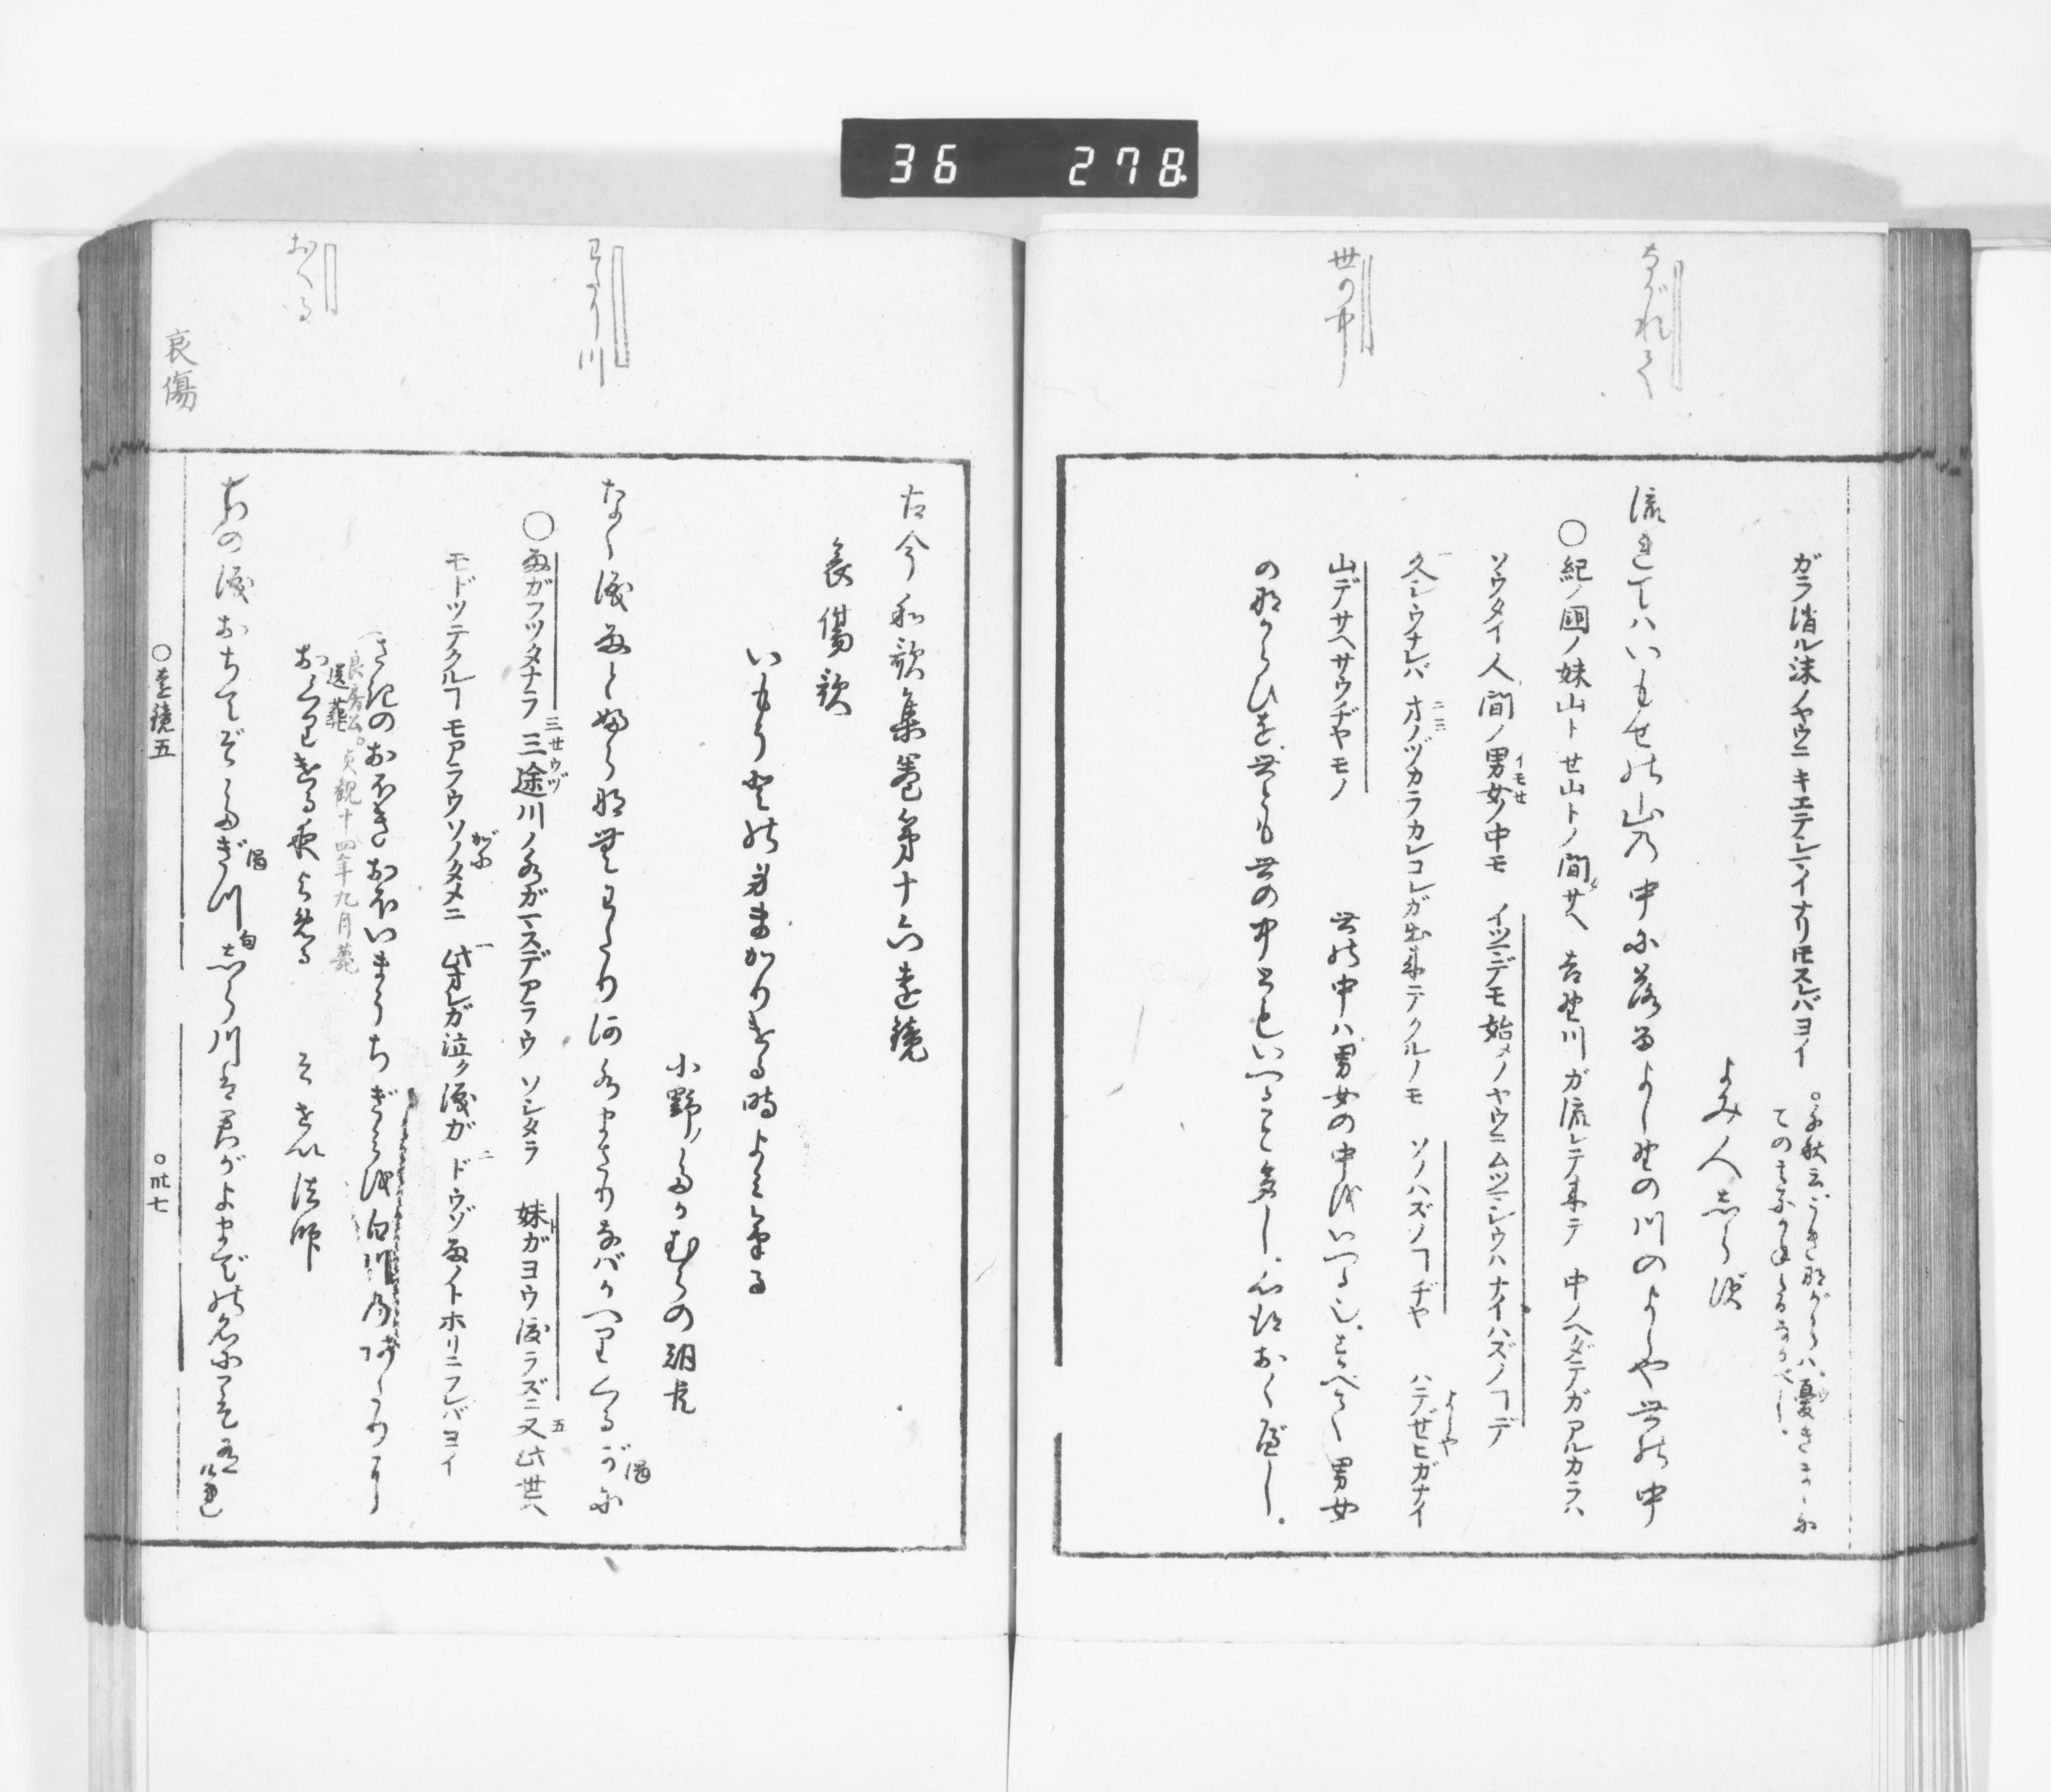 36 278
ながれて
世の中
ガラ消ル沫ノヤウニキエテシマイナリトモスレバヨイ
よみ人志らず
流れてハいもせの山乃中に落るよしのの川のよしや世の中
○紀ノ國ノ妹山ト世山トノ間サヘ 吉野川ガ流レテ来テ 中ノヘダテガアルカラハ
ソウタイ人間ノ男女ノ中モ イツマデモ始メノヤウニムツマシウハナイハズノヿデ
イモセ
久シウナレバ オノヅカラカレコレガ出来テクルノモ ソノハズノヿヂヤ ハテゼヒガナイ
よしや
山デサヘサウヂヤモノ 世の中ハ男女の中をいへる也すべて男女
のならひを世とも世の中ともいへること多し心得おくべし
わたり川
おくる
哀傷
古今和歌集巻第十六遠鏡
哀傷歌
いもうとの身まかりける時よみける
小野ノたかむらの朝臣
なく涙雨とふらなむわたり河水まさりなバかへりくるがに
○雨ガフツタナラ 三途川ノ水ガマスデアラウ ソシタラ 妹ガヨウ渡ラズニ又此世ヘ
三サウヅ
モドツテクルヿモアラウソノタメニ 此オレガ泣ク涙ガ ドウゾ雨ノトホリニフレバヨイ
がに
さきのおほきおほいまうちぎミを白川乃
良房公 貞観十四年九月薨
送葬
おくりける夜よめる そせい法師
ちの涙おちてぞたぎつ志ら川は君がよまでの名にこそ有けれ
○遠鏡五
○卅七